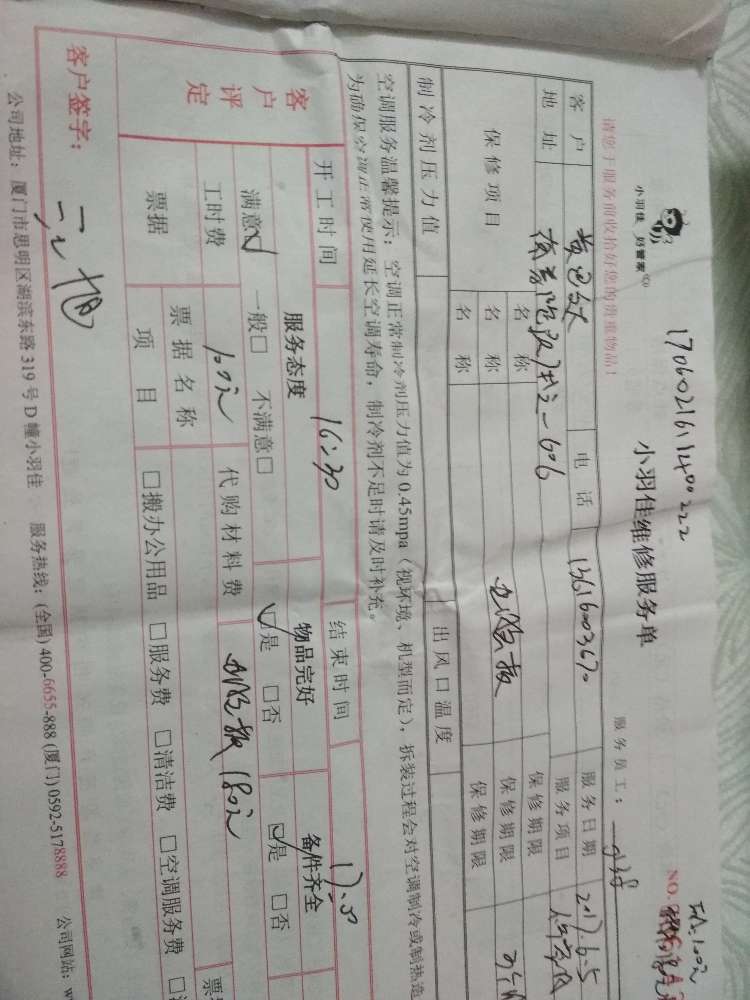 1706021611400222
小羽佳 好管家
小羽佳维修服务单
NO.
请您于服务前收拾好您的贵重物品！
服务员工：
客户 电话 13616003670 服务日期 2017.6.5
地址 2-606 服务项目
保修项目 名称 保修期限
名称 电脑板 保修期限
名称 保修期限
制冷剂压力值 出风口温度
空调服务温馨提示：空调正常制冷剂压力值为0.45mpa（视环境、机型而定），拆装过程会对空调制冷或制热造
为确保空调正常使用延长空调寿命，制冷剂不足时请及时补充。
开工时间 16:30 结束时间 17:30
客户评定 服务态度 物品完好 备件齐全
满意☑ 一般□ 不满意□ ☑是 □否 ☑是 □否
工时费 100元 代购材料费 电脑板180元
票据 票据名称 票
项目 □搬办公用品 □服务费 □清洁费 □空调服务费
客户签字：
公司地址：厦门市思明区湖滨东路319号D幢小羽佳 服务热线：(全国) 400-6655-888 (厦门) 0592-5178888 公司网站：w